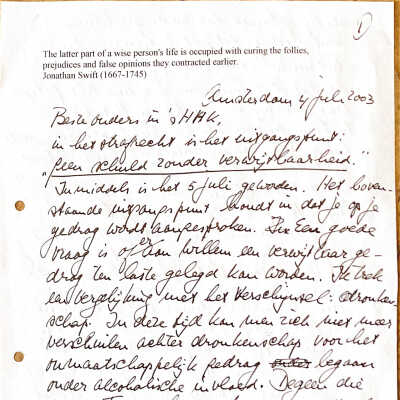 1
The latter part of a wise person's life is occupied with curing the follies,
prejudices and false opinions they contracted earlier.
Jonathan Swift (1667-1745)
Amsterdam 4 juli 2003
Beste ouders in 's HAK,
in het strafrecht is het uitgangspunt:
"Geen schuld zonder verwijtbaarheid."
Inmiddels is het 5 juli geworden. Het boven-
staande uitgangspunt houdt in dat je op je
gedrag wordt aangesproken. Een goede
vraag is of er aan Willem een verwijtbaar ge-
drag ten laste gelegd kan worden. Ik trek
een vergelijking met het verschijnsel: dronken-
schap. In deze tijd kan men zich niet meer
verschuilen achter dronkenschap voor het
onmaatschappelijk gedrag begaan
onder alcoholische invloed. Degeen die